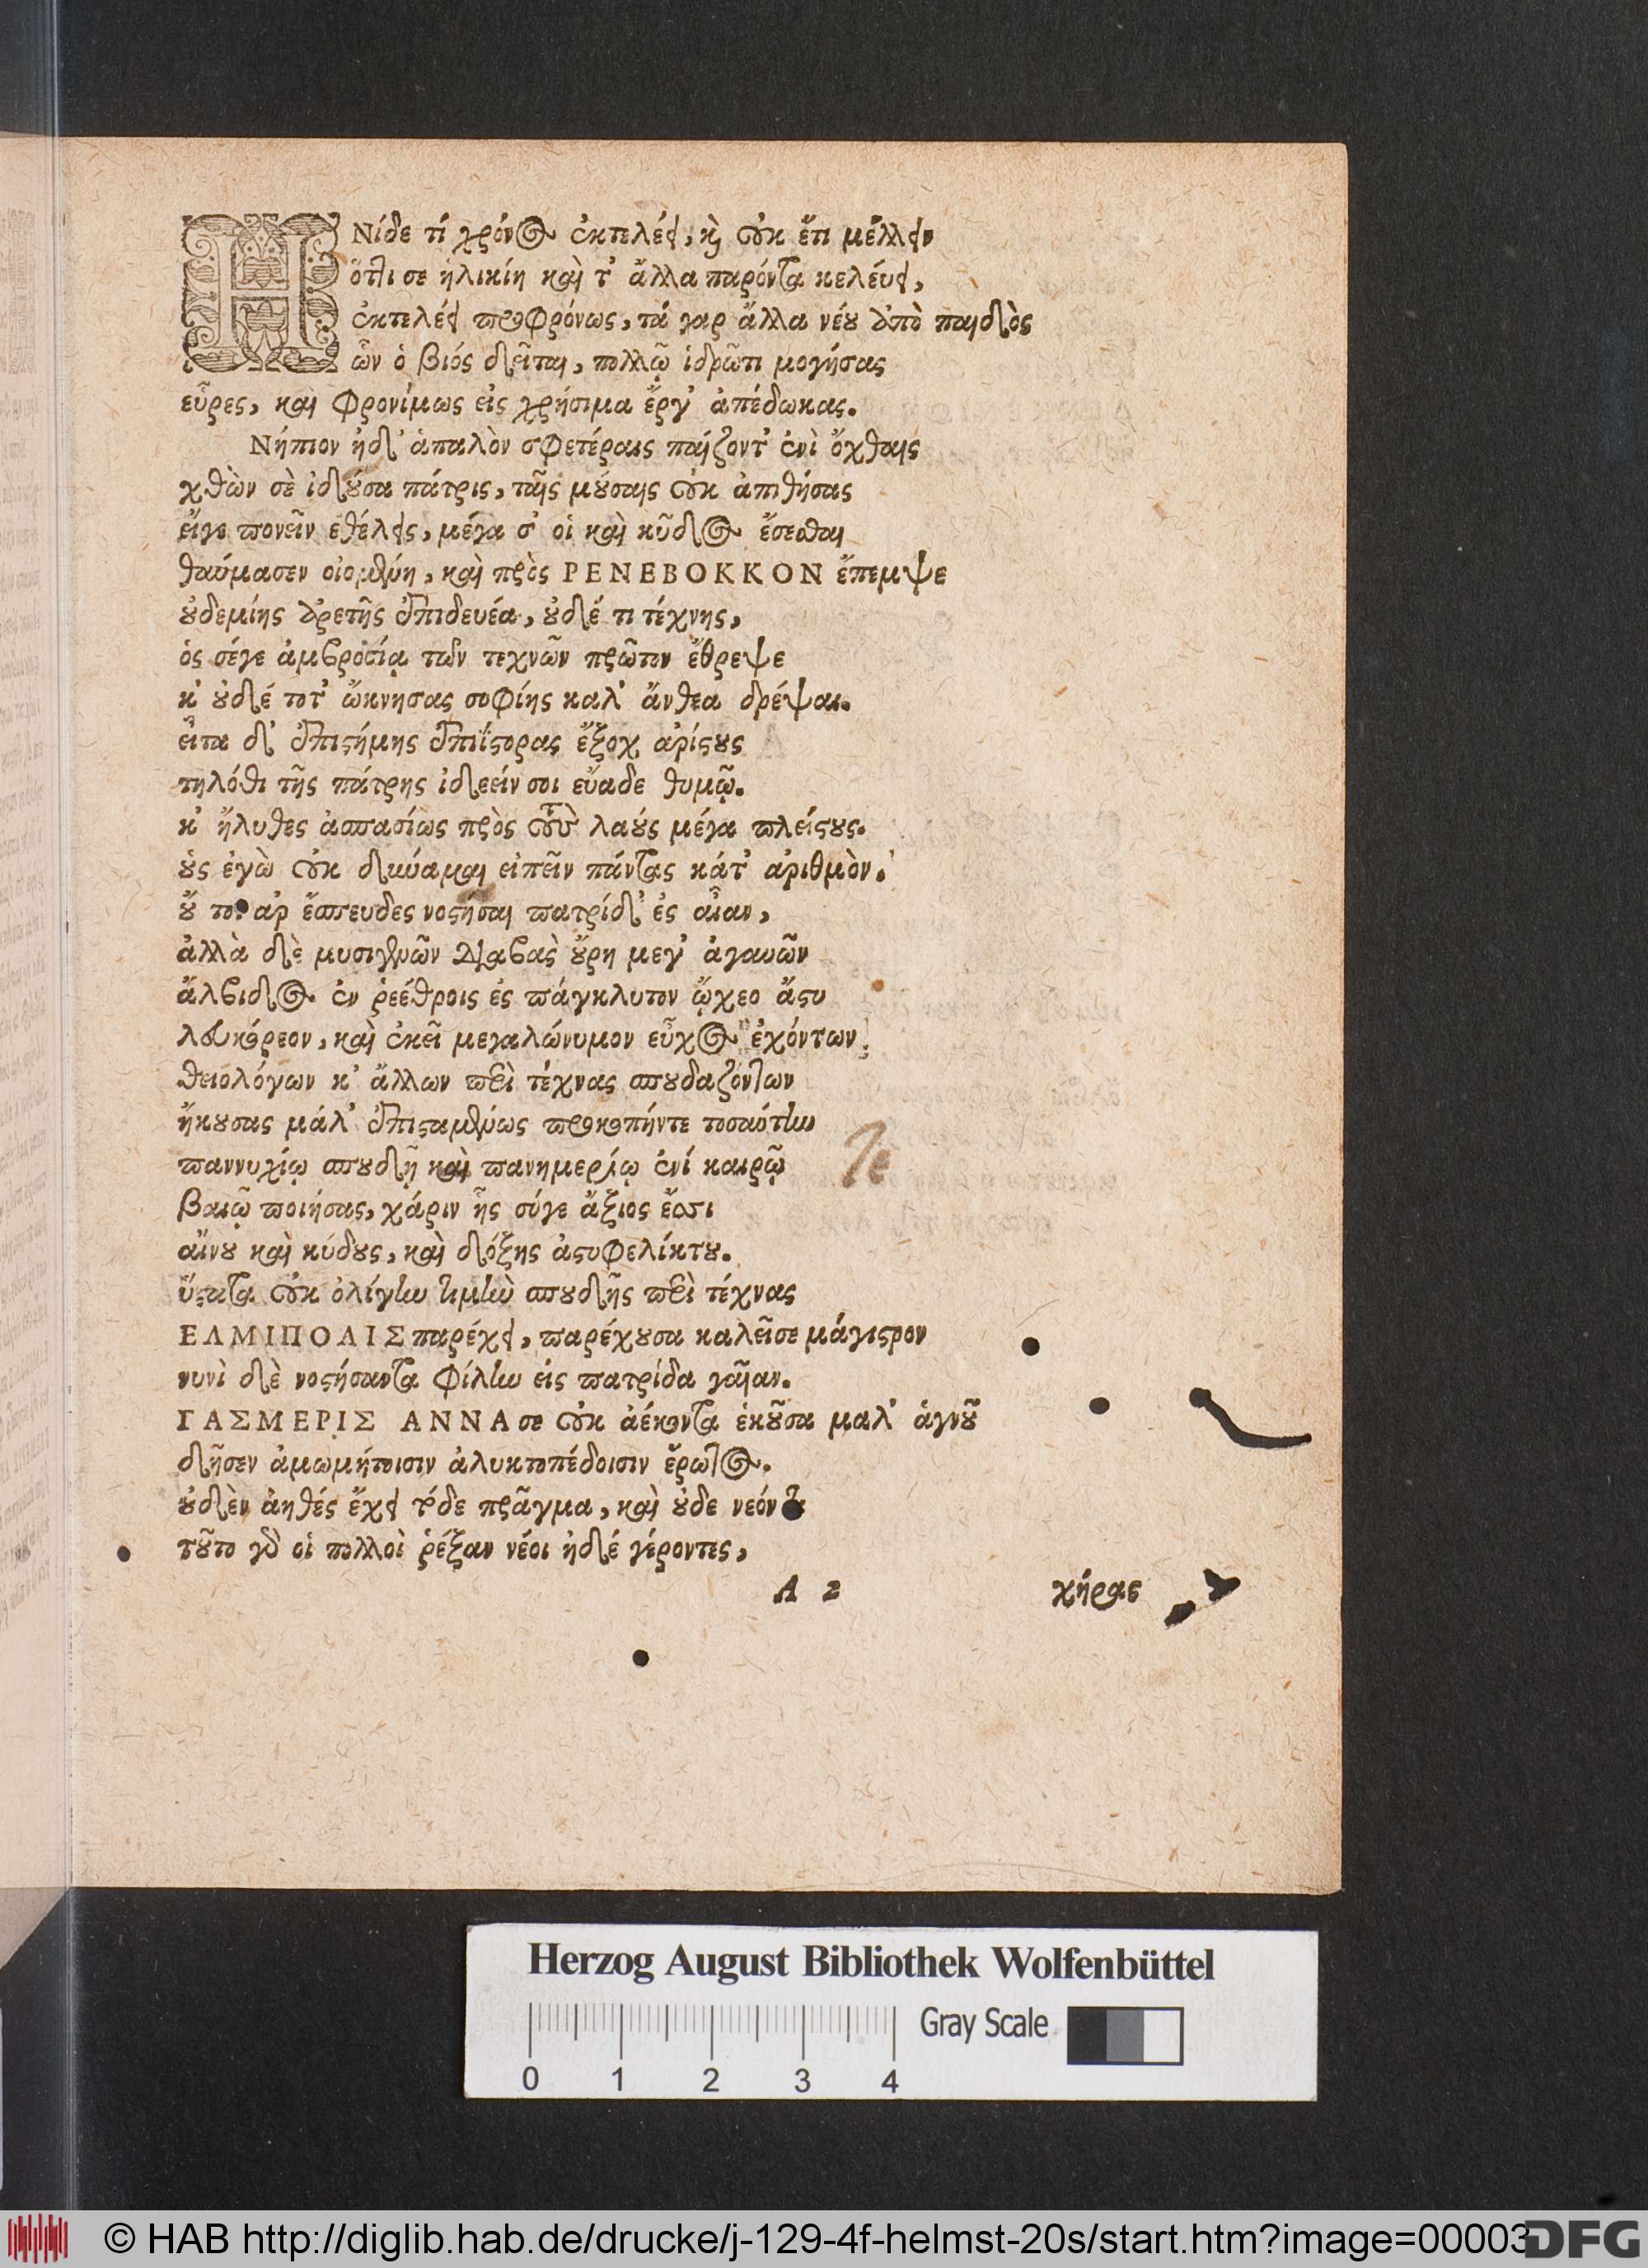 ΗΝίδε τί χρόνος ἐκτελέει, καὶ οὐκ ἔτι μέλλειν
ὅτλι σε ἡλικίη καὶ τ' ἄλλα παρόντα κελέυει,
ἐκτελέει προφρόνως, τά γαρ ἄλλα νέου ἀπὸ παιδὸς
ὧν ὁ βιός δεῖται, πολλῷ ἱδρῶτι μογήσας
εὗρες, καὶ φρονίμως εἰς χρήσιμα ἔργ' ἀπέδωκας.
Νήπιον ἠδ' ἁπαλὸν σφετέραις παίζοντ' ἐνὶ ὄχθαις
χθὼν σὲ ἰδοῦσα πάτρις, ταῖς μούσαις οὐκ ἀπιθήσας
εἴγε πονεῖν εθέλεις, μέγα σ' οἱ καὶ κῦδος ἔσεσθαι
θαύμασεν οἰομένη, καὶ πρὸς ΡΕΝΕΒΟΚΚΟΝ ἔπεμψε
οὐδεμίης ἀρετῆς ἐπιδευέα, οὐδέ τι τέχνης,
ὁς σέγε ἀμβροσίᾳ τῶν τεχνῶν πρῶτον ἔθρεψε
κ' οὐδέ τοτ' ὤκνησας σοφίης καλ' ἄνθεα δρέψαι.
εἶτα δ' ἐπιστήμης ἐπιΐστορας ἔξοχ ἀρίστους
τηλόθι τῆς πάτρης ἰδεείν σοι εὔαδε θυμῷ.
κ' ἤλυθες ἀσπασίως πρὸς τοὺς λαούς μέγα πλείστους.
οὑς ἐγὼ οὐκ δύναμαι εἰπεῖν πάντας κάτ' ἀριθμὸν.
οὔ τοι ἀρ ἔσπευδες νοστῆσαι πατρίδ' ἐς αἶαν,
ἀλλὰ δὲ μυσιγενῶν διαβὰς οὔρη μεγ' ἀγαυῶν
ἄλβιδος ἐν ῥεέθροις ἐς πάγκλυτον ᾤχεο ἄστυ
λευκόρεον, καὶ ἐκεῖ μεγαλώνυμον εὖχος ἐχόντων
θειολόγων κ' ἄλλων περὶ τέχνας σπουδαζόντων
ἤκουσας μάλ' ἐπισταμένως προκοπήντε τοσαύτην
παννυχίῳ σπουδῇ καὶ πανημερίῳ ἐνί καιρῷ
βαιῷ ποιήσας, χάριν ἧς σύγε ἄξιος ἔσσι
αἴνου καὶ κύδους, καὶ δόξης ἀστυφελίκτου.
ὕστατα οὐκ ὀλίγην τιμὴν σπουδῆς περὶ τέχνας
ΕΛΜΙΠΟΛΙΣ παρέχει, παρέχουσα καλεῖσε μάγιστρον
νυνὶ δὲ νοστήσαντα φίλην εἰς πατρίδα γαῖαν.
ΓΑΣΜΕΡΙΣ ΑΝΝΑ σε οὐκ ἀέκοντα ἑκοῦσα μαλ' ἁγνοῦ
δῆσεν ἀμωμήτοισιν ἀλυκτοπέδοισιν ἔρωτος.
οὐδὲν ἀηθές ἔχει τόδε πρᾶγμα, καὶ οὐδε νεόν
τοῦτο γὰρ οἱ πολλοὶ ῥέξαν νέοι ἠδέ γέροντες,
A 2 χήρας
Herzog August Bibliothek Wolfenbüttel
Gray Scale
0 1 2 3 4
© HAB http://diglib.hab.de/drucke/j-129-4f-helmst-20s/start.htm?image=00003
DFG